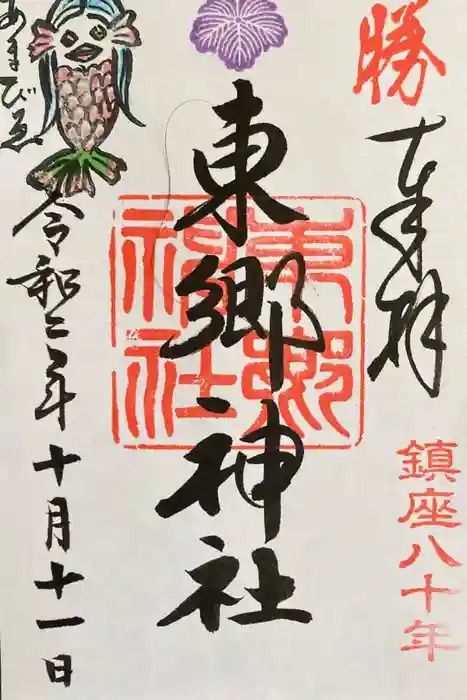 勝
奉拝
鎮座八十年
東郷神社
東郷神社
令和二年十月十一日
あまびゑ